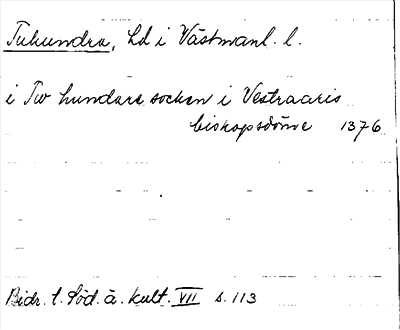 Tuhundra, hd i Västmanl. l.
i Tw hundare socken i Vestraaris
biskopsdöme 1376
Bidr. t. Söd. ä. kult. VII s. 113